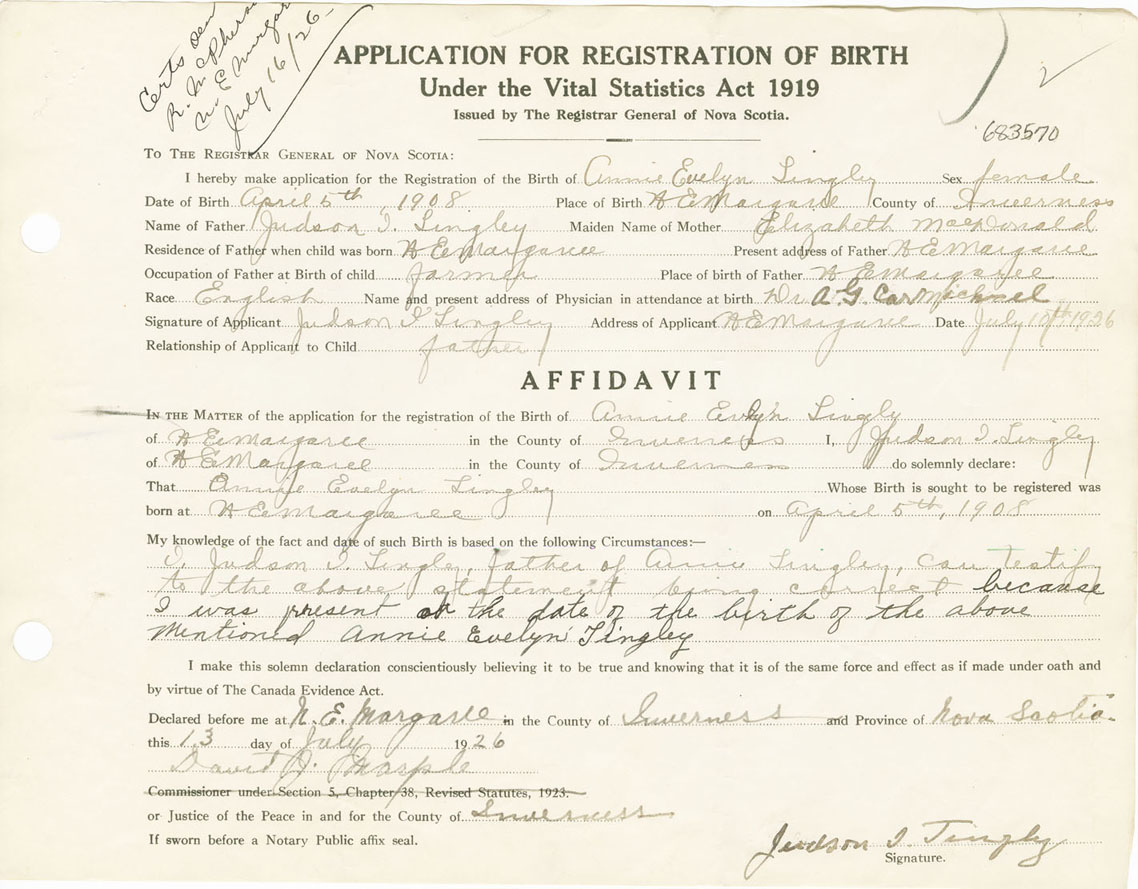 Certs sen
R. McPherso
N. E. Margar
July 16/26-
APPLICATION FOR REGISTRATION OF BIRTH
Under the Vital Statistics Act 1919
Issued by The Registrar General of Nova Scotia.
2
683570
TO THE REGISTRAR GENERAL OF NOVA SCOTIA:
I hereby make application for the Registration of the Birth of Annie Evelyn Tingley Sex female
Date of Birth April 5th, 1908 Place of Birth N E Margaree County of Inverness
Name of Father Judson I. Tingley Maiden Name of Mother Elizabeth MacDonald
Residence of Father when child was born N E Margaree Present address of Father N E Margaree
Occupation of Father at Birth of child farmer Place of birth of Father N E Margaree
Race English Name and present address of Physician in attendance at birth Dr A. G. Carmichael
Signature of Applicant Judson I Tingley Address of Applicant N E Margaree Date July 10th 1926
Relationship of Applicant to Child father
AFFIDAVIT
IN THE MATTER of the application for the registration of the Birth of Annie Evlyn Tingly
of N E Margaree in the County of Inverness I, Judson I. Tingley
of N E Margaree in the County of Inverness do solemnly declare:
That Annie Evelyn Tingley Whose Birth is sought to be registered was
born at N E Margaree on April 5th, 1908
My knowledge of the fact and date of such Birth is based on the following Circumstances:—
I, Judson I Tingley, father of Annie Tingley, can testify
to the above statement being correct because
I was present at the date of the birth of the above
mentioned Annie Evelyn Tingley
I make this solemn declaration conscientiously believing it to be true and knowing that it is of the same force and effect as if made under oath and
by virtue of The Canada Evidence Act.
Declared before me at N. E. Margaree in the County of Inverness and Province of Nova Scotia
this 13 day of July 1926
David J. Marple
Commissioner under Section 5, Chapter 38, Revised Statutes, 1923.
or Justice of the Peace in and for the County of Inverness
If sworn before a Notary Public affix seal.
Judson I. Tingly
Signature.